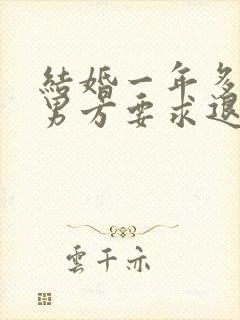 結婚一年多
男方要求退
雲千亦